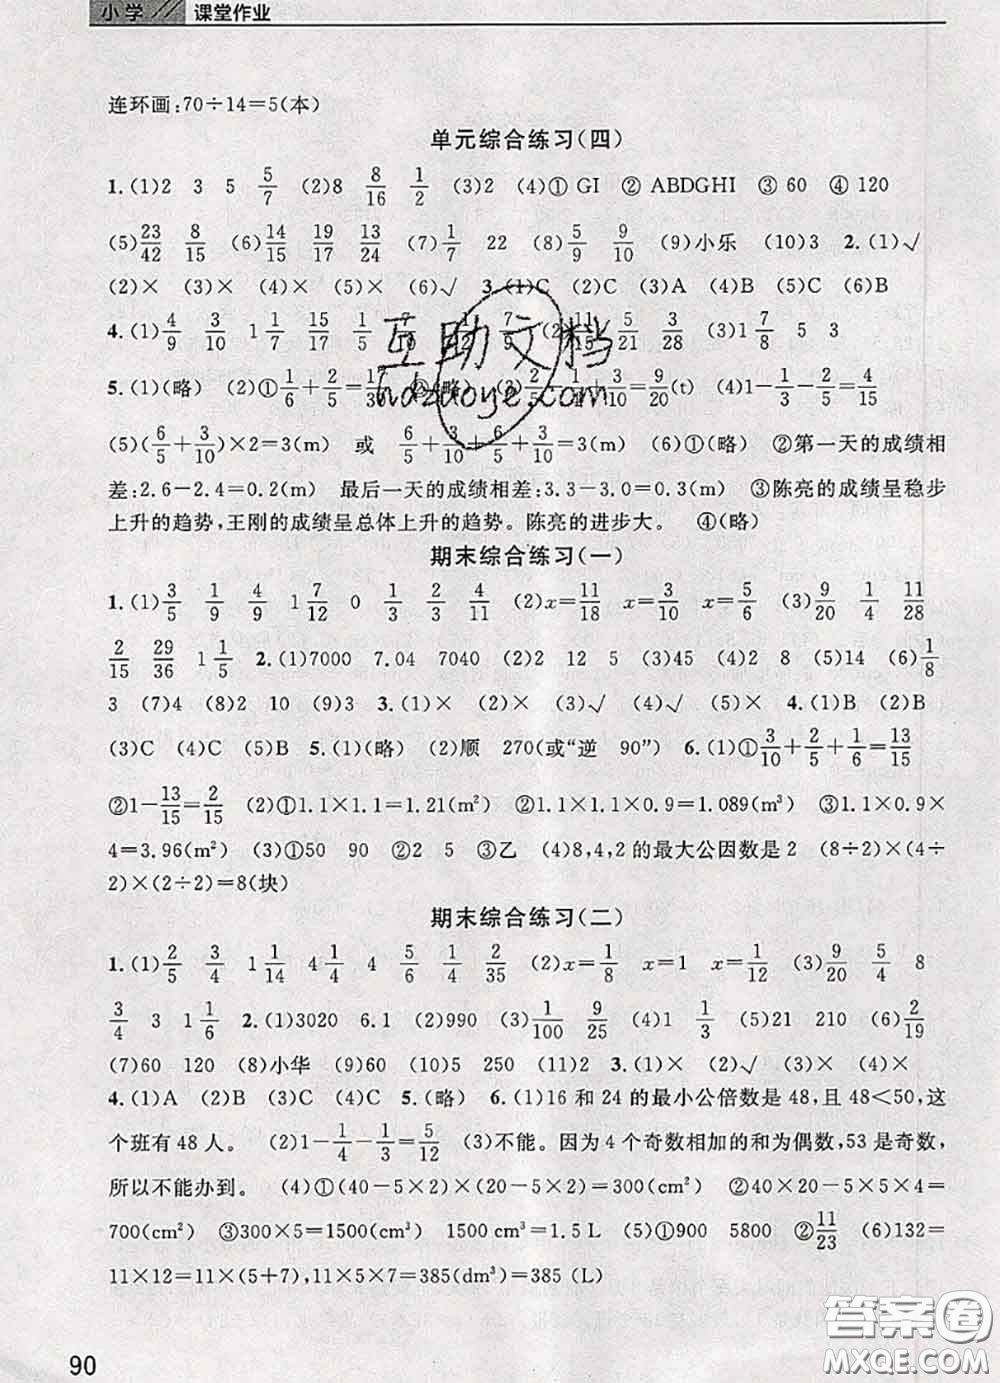 小学 课堂作业
连环画:70÷14=5(本)
单元综合练习(四)
1.(1)2 3 5 5/7 (2)8 8/16 1/2 (3)2 (4)① GI ② ABDGHI ③ 60 ④ 120
(5)23/42 8/15 (6)14/15 19/17 13/24 (7)1/7 22 (8)5/9 9/10 (9)小乐 (10)3 2.(1)√
(2)× (3)× (4)× (5)× (6)√ 3.(1)C (2)C (3)A (4)B (5)C (6)B
4.(1)4/9 3/10 1 1/7 15/17 1 1/5 7/10 7/9 (2) 5/21 3/28 (3)1 7/8 5 3
5.(1)(略) (2)①1/6+2/5=17/30 ②(略) (3)2/5 +3/10=9/20(t) (4)1-1/3-2/5=4/15
(5)(6/5+3/10)×2=3(m) 或 6/5+3/10+6/5+3/10=3(m) (6)①(略) ②第一天的成绩相
差:2.6-2.4=0.2(m) 最后一天的成绩相差:3.3-3.0=0.3(m) ③陈亮的成绩呈稳步
上升的趋势,王刚的成绩呈总体上升的趋势。陈亮的进步大。 ④(略)
期末综合练习(一)
1.(1)3/5 1/9 4/9 1 7/12 0 1/3 2/3 4/11 (2)x=11/18 x=3/10 x=5/6 (3)9/20 1/4 11/28
2/15 29/36 1 1/5 2.(1)7000 7.04 7040 (2)2 12 5 (3)45 (4)2 8 (5)14 (6)1/8
3 (7)4 (8)2 10 (9)3 3.(1)× (2)× (3)√ (4)√ (5)× 4.(1)B (2)B
(3)C (4)C (5)B 5.(1)(略) (2)顺 270(或“逆 90”) 6.(1)①3/10+2/5+1/6=13/15
②1-13/15=2/15 (2)①1.1×1.1=1.21(m²) ②1.1×1.1×0.9=1.089(m³) ③1.1×0.9×
4=3.96(m²) (3)①50 90 ②2 5 ③乙 (4)8,4,2的最大公因数是2 (8÷2)×(4÷
2)×(2÷2)=8(块)
期末综合练习(二)
1.(1)2/5 3/4 1 1/14 4 1/4 4 5/6 1/4 2/35 (2)x=1/8 x=1 x=1/12 (3)9/20 5/4 8
3/4 3 1 1/6 2.(1)3020 6.1 (2)990 (3)1/100 9/25 (4)1 1/3 (5)21 210 (6)2/19
(7)60 120 (8)小华 (9)60 (10)5 250 (11)2 3.(1)× (2)√ (3)× (4)×
4.(1)A (2)B (3)C (4)C 5.(略) 6.(1)16和24的最小公倍数是48,且48<50,这
个班有48人。 (2)1-1/4-1/3=5/12 (3)不能。因为4个奇数相加的和为偶数,53是奇数,
所以不能办到。 (4)①(40-5×2)×(20-5×2)=300(cm²) ②40×20-5×5×4=
700(cm²) ③300×5=1500(cm³) 1500 cm³=1.5 L (5)①900 5800 ②11/23 (6)132=
11×12=11×(5+7),11×5×7=385(dm³)=385 (L)
90
互助文档
hdzuoye.com
答案圈
MXQE.COM